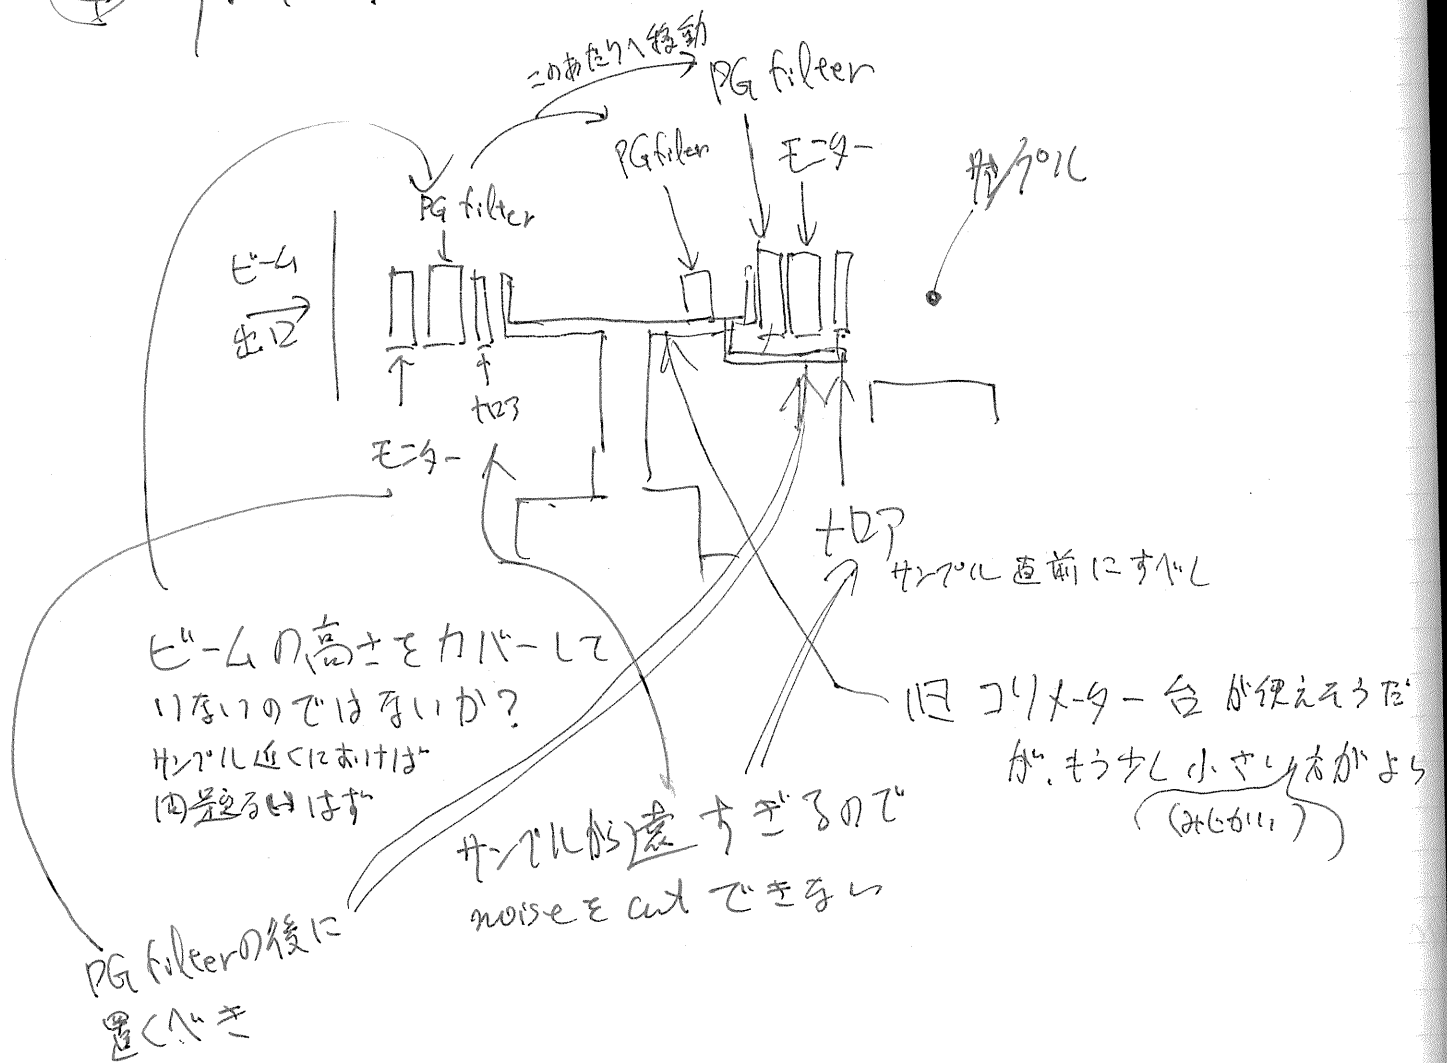 このあたりへ移動
PG filter
PG filer
モニター
サンプル
PG filter
ビーム
出口
ナロア
モニター
ナロア
サンプル直前にすべし
ビームの高さをカバーして
いないのではないか?
サンプル近くにおけば
問題ないはず
旧コリメーター台が使えそうだ
が、もう少し小さい方がよい
(みじかい)
サンプルから遠すぎるので
noiseをcutできない
PG filterの後に
置くべき